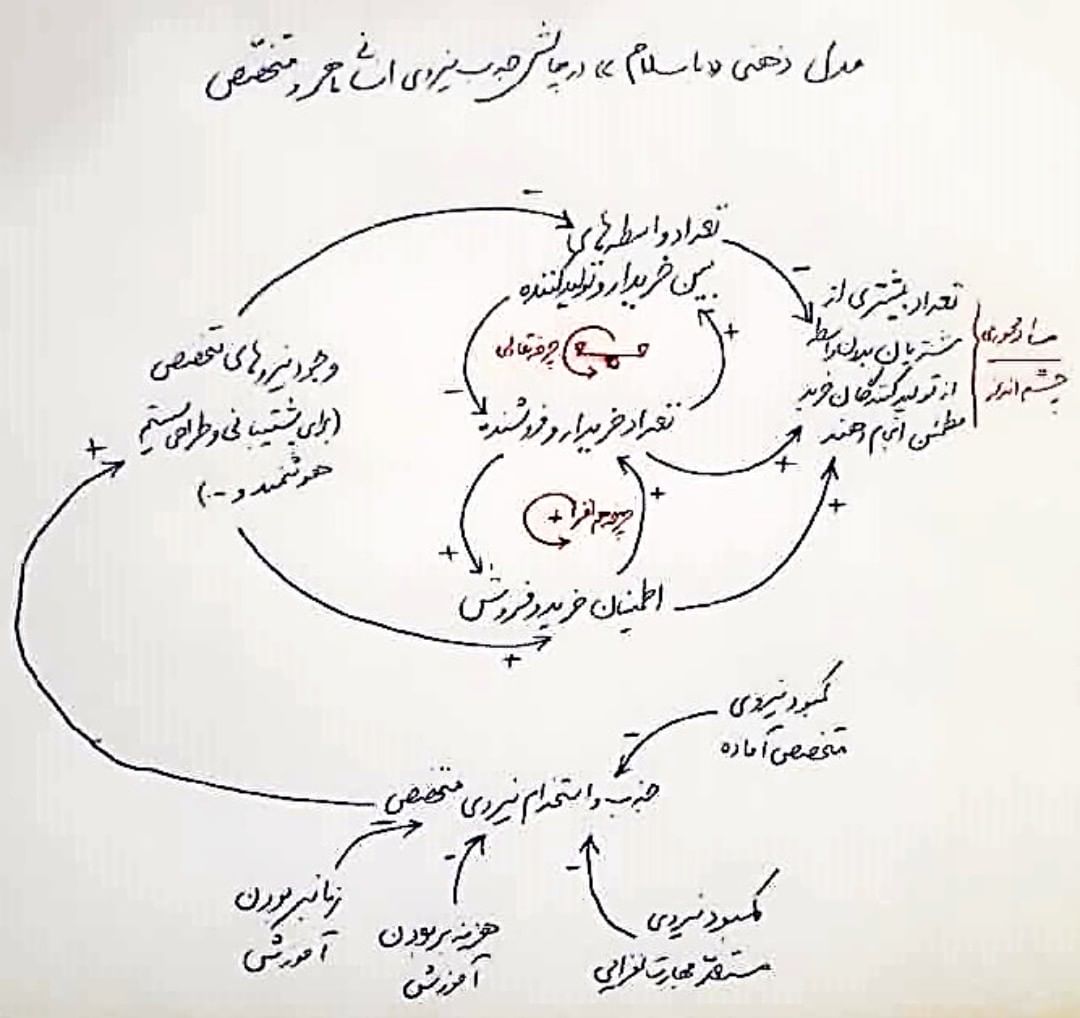 مدل ذهنی «باسلام» در چالش جذب نیروی انسانی ماهر و متخصص
-
تعداد واسطه‌های
بین خریدار و تولیدکننده
-
تعداد بیشتری از
مشتریان بدون واسطه
از تولیدکنندگان خرید
مطمئن انجام دهند
چشم‌انداز
-
+
چرخه تعادلی
-
تعداد خریدار و فروشنده
+
+
چرخه هم‌افزا
+
+
+
اطمینان خرید و فروش
+
وجود نیروهای متخصص
(برای پشتیبانی و طراحی سیستم
هوشمند و ...)
+
کمبود نیروی
متخصص آماده
-
جذب و استخدام نیروی متخصص
-
-
-
زمانبر بودن
آموزش
هزینه بر بودن
آموزش
کمبود نیروی
مستعد مهارت افزایی